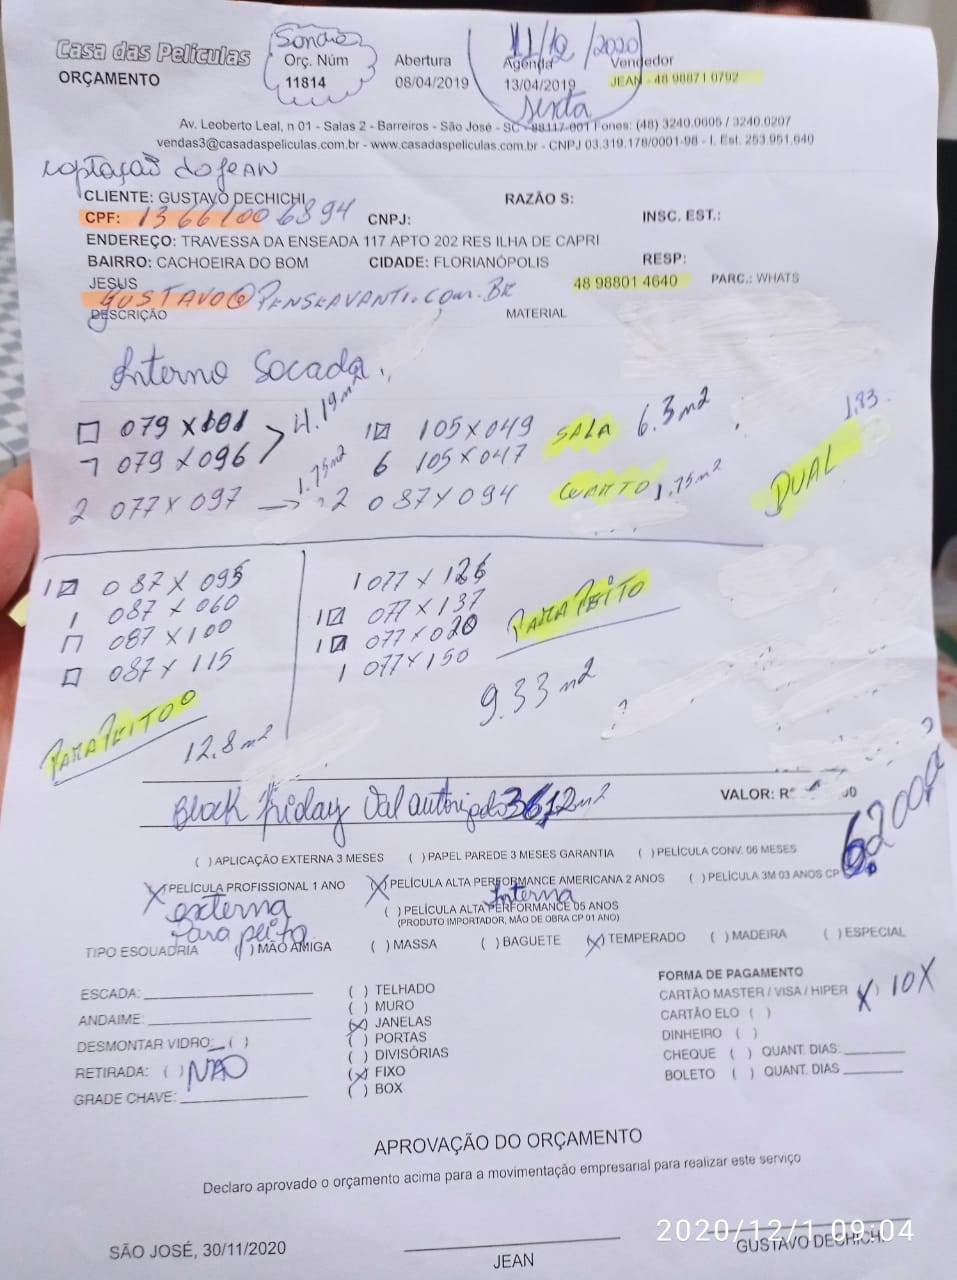 Casa das Películas
ORÇAMENTO
Orç. Núm
11814
Abertura
08/04/2019
11/12/2020
Agenda
13/04/2019
Sexta
Vendedor
JEAN - 48 98871 0792
Av. Leoberto Leal, n 01 - Salas 2 - Barreiros - São José - SC - 88117-001 Fones: (48) 3240.0605 / 3240.0207
vendas3@casadaspeliculas.com.br - www.casadaspeliculas.com.br - CNPJ 03.319.178/0001-98 - I. Est. 253.951.640
captação do JEAN
CLIENTE: GUSTAVO DECHICHI RAZÃO S:
CPF: 13661006894 CNPJ: INSC. EST.:
ENDEREÇO: TRAVESSA DA ENSEADA 117 APTO 202 RES ILHA DE CAPRI
BAIRRO: CACHOEIRA DO BOM CIDADE: FLORIANÓPOLIS RESP:
JESUS 48 98801 4640 PARC.: WHATS
GUSTAVO@PENSEAVANTI.COM.BR
DESCRIÇÃO MATERIAL
Interno Sacada
079 x 4.19 m² 1 105 x 049 SALA 6.3 m² 1,83
7 079 x 096 6 105 x 047
2 077 x 097 1.75 m² 2 087 x 094 QUARTO 1,75 m² DUAL
1 087 x 095 1 077 x 126
1 087 x 060 1 077 x 137
087 x 100 1 077 x 020
087 x 115 1 077 x 150
PARAPEITO
9.33 m²
PARAPEITO
12.8 m²
Black friday Val autorizado 36,12 m² VALOR: R$ 00
6.200,00
( ) APLICAÇÃO EXTERNA 3 MESES ( ) PAPEL PAREDE 3 MESES GARANTIA ( ) PELÍCULA CONV. 06 MESES
(X) PELÍCULA PROFISSIONAL 1 ANO (X) PELÍCULA ALTA PERFORMANCE AMERICANA 2 ANOS ( ) PELÍCULA 3M 03 ANOS CP
externa Interna
( ) PELÍCULA ALTA PERFORMANCE 05 ANOS
(PRODUTO IMPORTADOR, MÃO DE OBRA CP 01 ANO)
Para peito
TIPO ESQUADRIA ( ) MÃO AMIGA ( ) MASSA ( ) BAGUETE (X) TEMPERADO ( ) MADEIRA ( ) ESPECIAL
ESCADA:
ANDAIME:
DESMONTAR VIDRO: ( )
RETIRADA: ( ) NÃO
GRADE CHAVE:
( ) TELHADO
( ) MURO
(X) JANELAS
( ) PORTAS
( ) DIVISÓRIAS
(X) FIXO
( ) BOX
FORMA DE PAGAMENTO
CARTÃO MASTER / VISA / HIPER (X) 10X
CARTÃO ELO ( )
DINHEIRO ( )
CHEQUE ( ) QUANT. DIAS:
BOLETO ( ) QUANT. DIAS
APROVAÇÃO DO ORÇAMENTO
Declaro aprovado o orçamento acima para a movimentação empresarial para realizar este serviço
SÃO JOSÉ, 30/11/2020
JEAN
GUSTAVO DECHICHI
2020/12/1 09:04